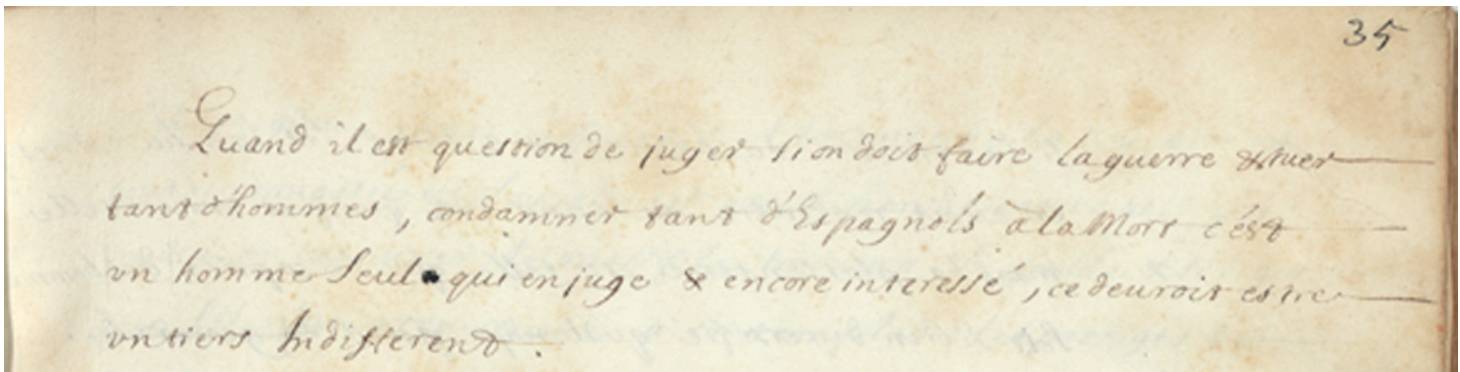 35
Quand il est question de juger si on doit faire la guerre & tuer
tant d'hommes, condamner tant d'Espagnols à la Mort c'est
vn homme seul qui en juge & encore interessé, ce deuroit estre
vn tiers Indifferent.